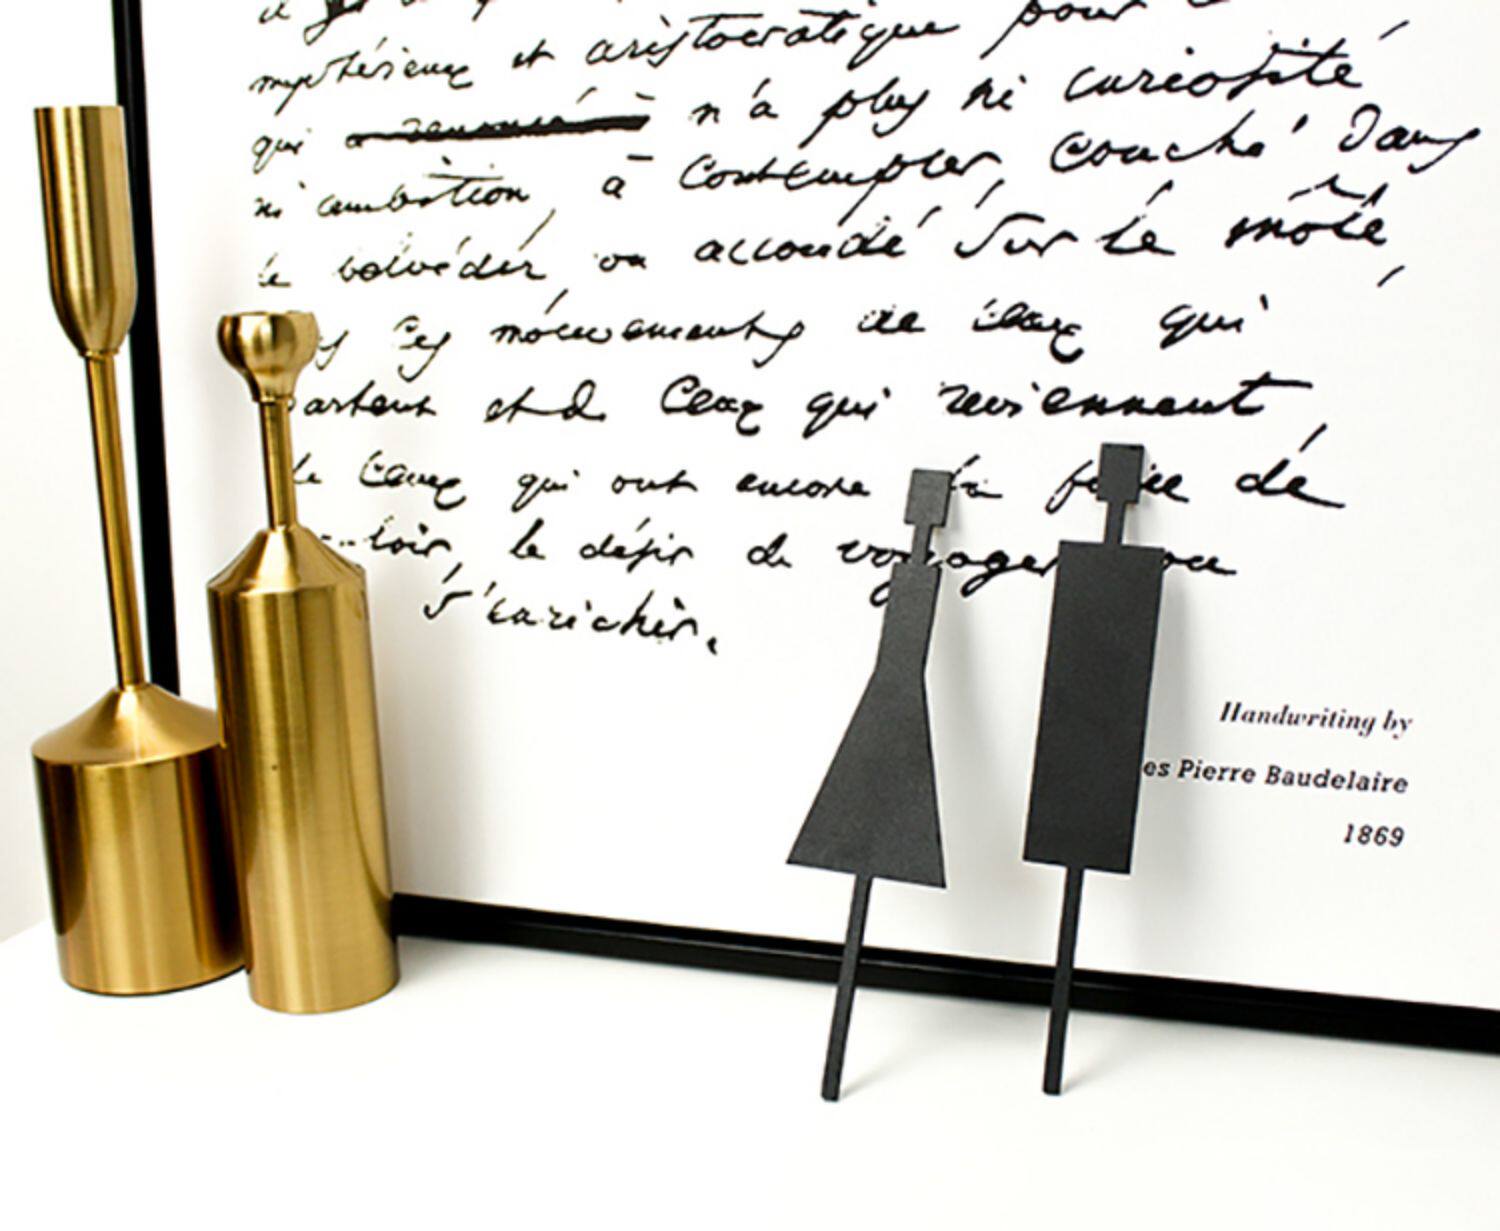 mystérieux et aristocratique pour
qui n'a plus ni curiosité
ni ambition, à contempler, couché dans
le belvédèr ou accoudé sur le môle,
ces mouvements de ceux qui
partent et de ceux qui reviennent,
de ceux qui ont encore la force de
le désir de voyager ou
s'enrichir.
Handwriting by
es Pierre Baudelaire
1869